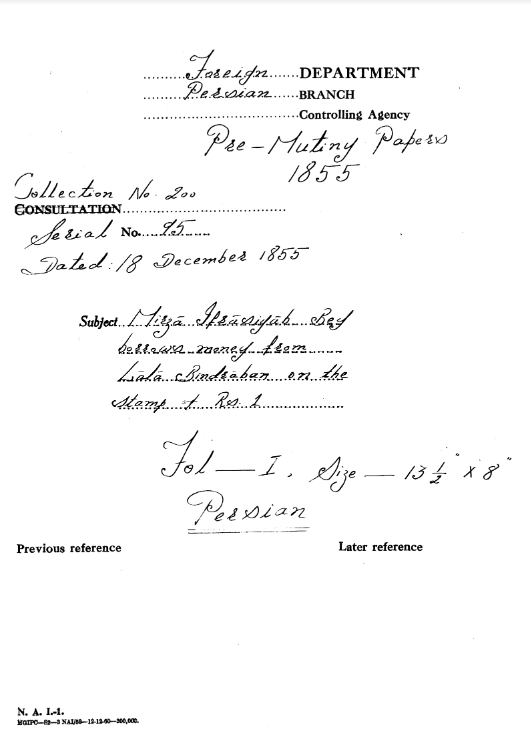 Foreign DEPARTMENT
Persian BRANCH
Controlling Agency
Pre-Mutiny Papers
1855
Collection No. 200
CONSULTATION
Serial No. 95
Dated: 18 December 1855
Subject Mirzā Ifrāsiyāb Beg
borrows money from
Lālā Bindraban on the
stamp of Rs. 1
Fol — I. Size — 13 1/2" x 8"
Persian
Previous reference Later reference
N. A. I.-1.
MGIPC—S2—3 NAI/58—12-12-60—300,000.